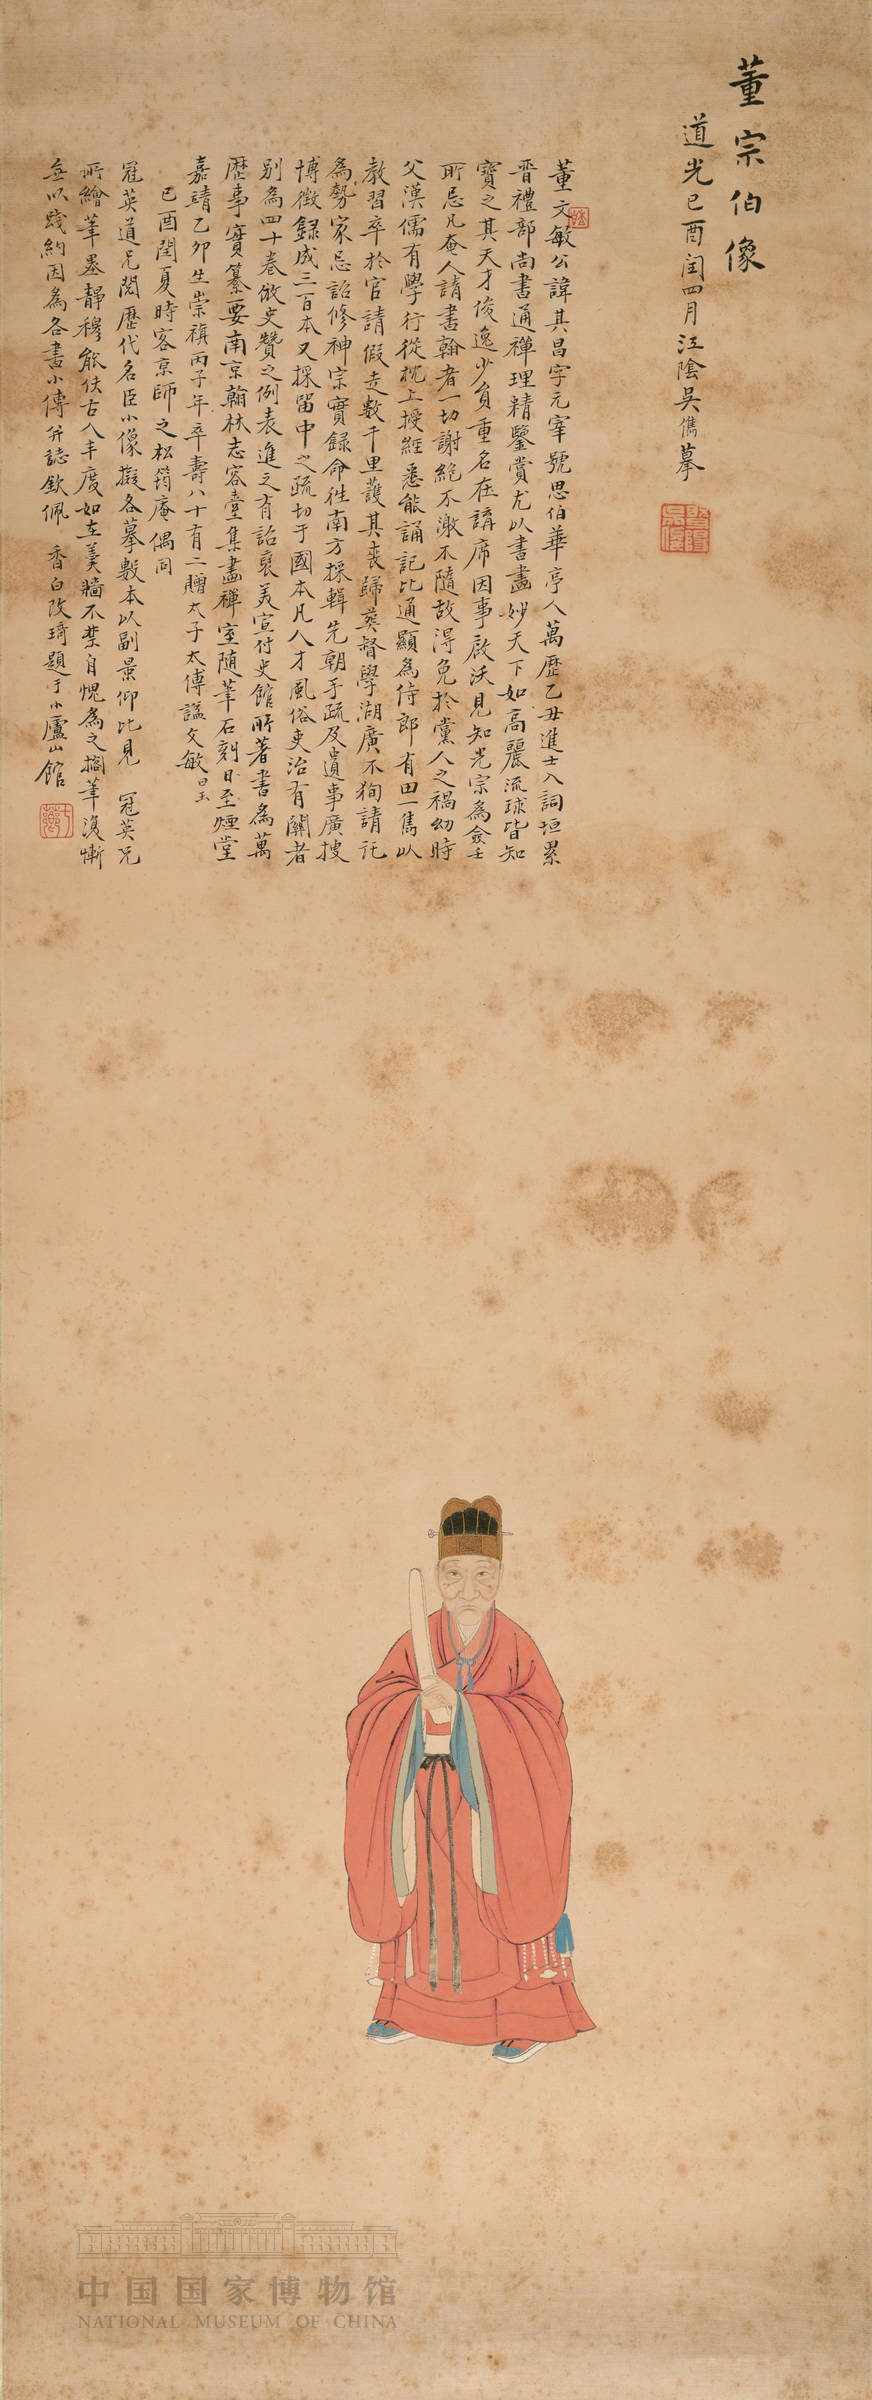 董宗伯像
道光己酉閏四月江陰吳儁摹
董文敏公諱其昌字元宰號思伯華亭人萬歷乙丑進士入詞垣累
晉禮部尚書通禪理精鑒賞尤以書畫妙天下如高麗流球皆知
寶之其天才俊逸少負重名在講席因事啟沃見知光宗為僉壬
所忌凡奄人請書翰者一切謝絕不激不隨故得免於黨人之禍幼時
父漢儒有學行從枕上授經悉能誦記比通顯為侍郎有田一雋以
教習卒於官請假走數千里護其喪歸葬督學湖廣不狥請託
為勢家忌詔修神宗實錄命往南方採輯先朝手疏及遺事廣搜
博徵錄成三百本又採留中之疏切于國本凡人才風俗吏治有關者
別為四十卷倣史贊之例表進之有詔褒美宣付史館所著書為萬
歷事實纂要南京翰林志容臺集畫禪室隨筆石刻日至煙堂
嘉靖乙卯生崇禎丙子年卒壽八十有二贈太子太傅諡文敏
己酉閏夏時客京師之松筠庵偶同
冠英道兄閱歷代名臣小像擬各摹數本以副景仰比見 冠英兄
所繪筆墨靜穆能伕古人丰度如在羹牆不禁自愧為之擱筆復慚
無以踐約因為各書小傳并誌欽佩 香白改琦題于小廬山館
中国国家博物馆
NATIONAL MUSEUM OF CHINA